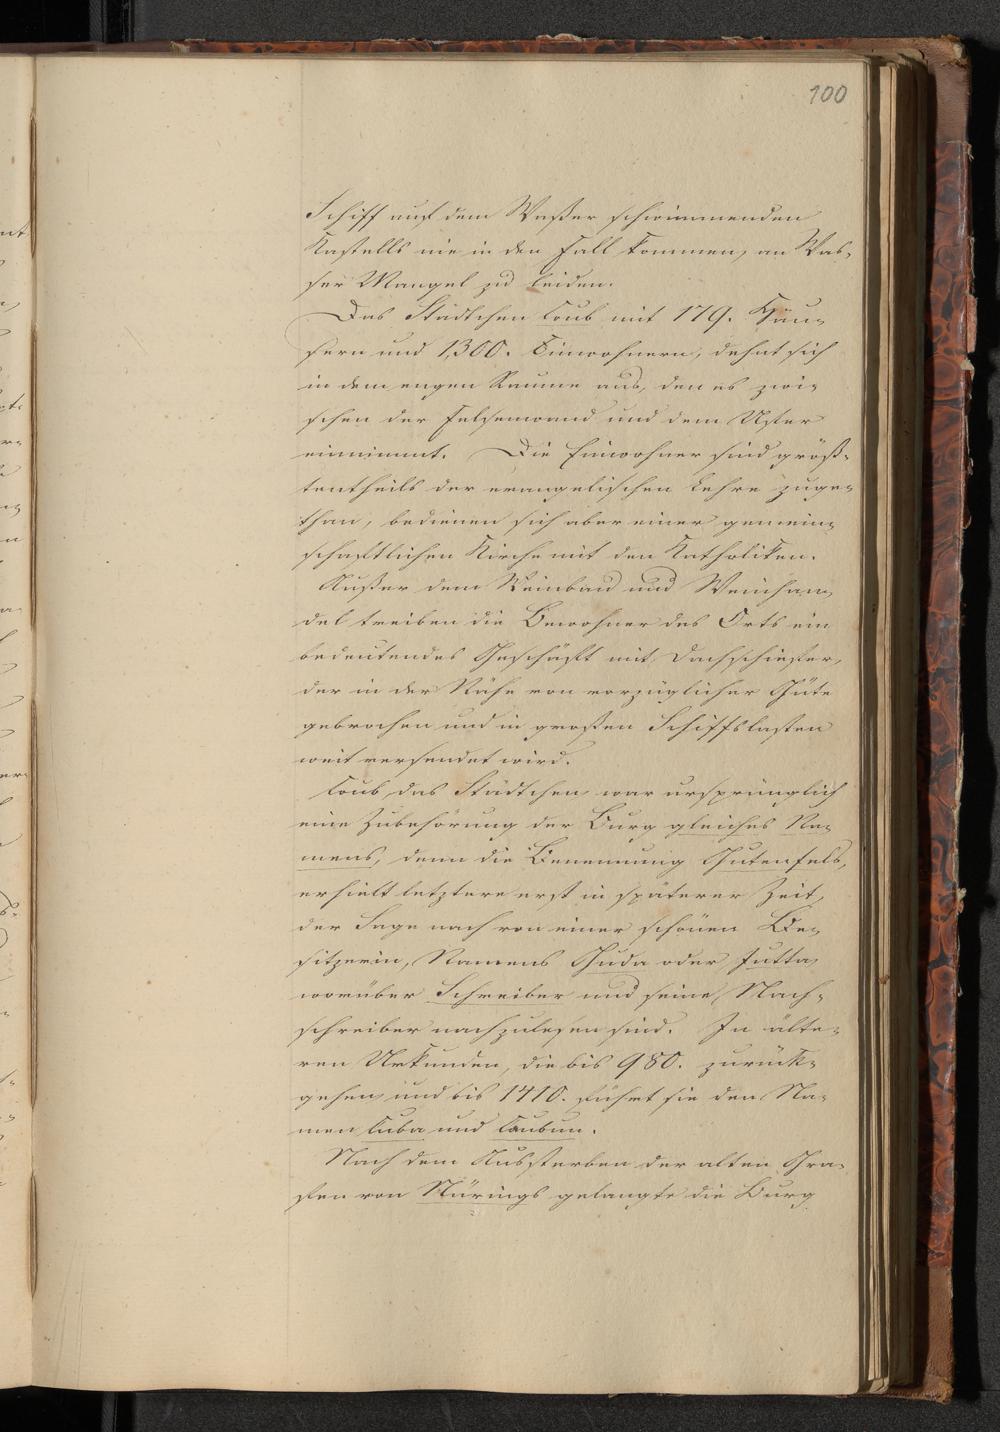 100
Schiff auf dem Waßer schwimmenden
Kastells nie in den Fall kommen, an Was-
ser Mangel zu leiden.
Das Städtchen Caub mit 179. Häu-
sern und 1300. Einwohnern, dehnt sich
in dem engen Raume aus, den es zwi-
schen der Felsenwand und dem Ufer
einnimmt. Die Einwohner sind größ-
tentheils der evangelischen Lehre zuge-
than, bedienen sich aber einer gemein-
schaftlichen Kirche mit den Katholiken.
Außer dem Weinbau und Weinhan-
del treiben die Bewohner des Orts ein
bedeutendes Geschäft mit Dachschiefer,
der in der Nähe von vorzüglicher Güte
gebrochen und in großen Schiffslasten
weit versendet wird.
Caub das Städtchen war ursprünglich
eine Zubehörung der Burg gleiches Na-
mens, denn die Benennung Gutenfels,
erhielt letztere erst in späterer Zeit,
der Sage nach von einer schönen Be-
sitzerin, Namens Guda oder Jutta,
worüber Schreiber und seine Nach-
schreiber nachzulesen sind. In älte-
ren Urkunden, die bis 980. zurück-
gehen und bis 1410. führt sie den Na-
men Cuba und Caubun.
Nach dem Aussterben der alten Gra-
fen von Nürings gelangte die Burg